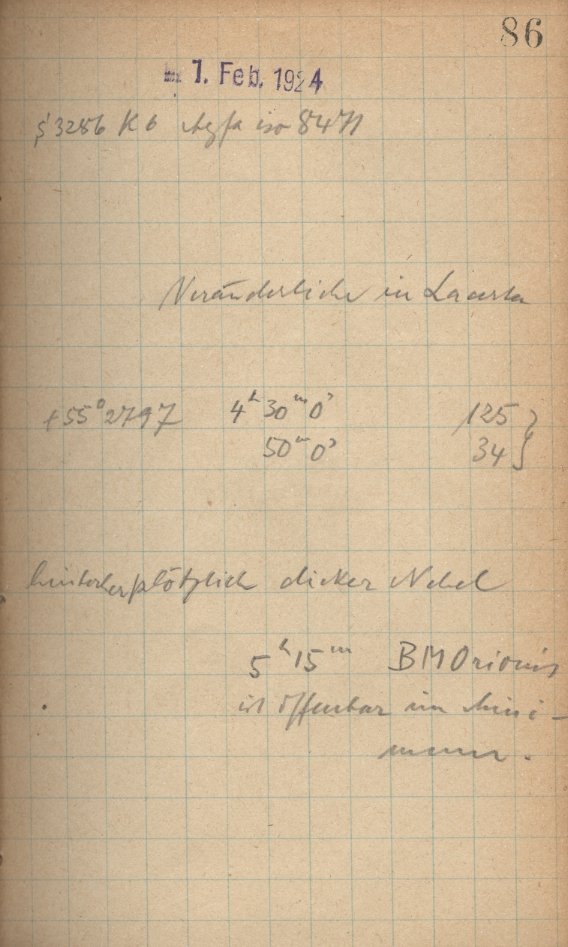 86
1. Feb. 1924
§3286 K6 Agfa iso 8471
Veränderliche in Lacerta
+55°2797 4ʰ30ᵐ0ˢ 125 }
50ᵐ0ˢ 34 }
hinterher plötzlich dicker Nebel
5ʰ15ᵐ BM Orionis
ist offenbar im Mini-
mum.